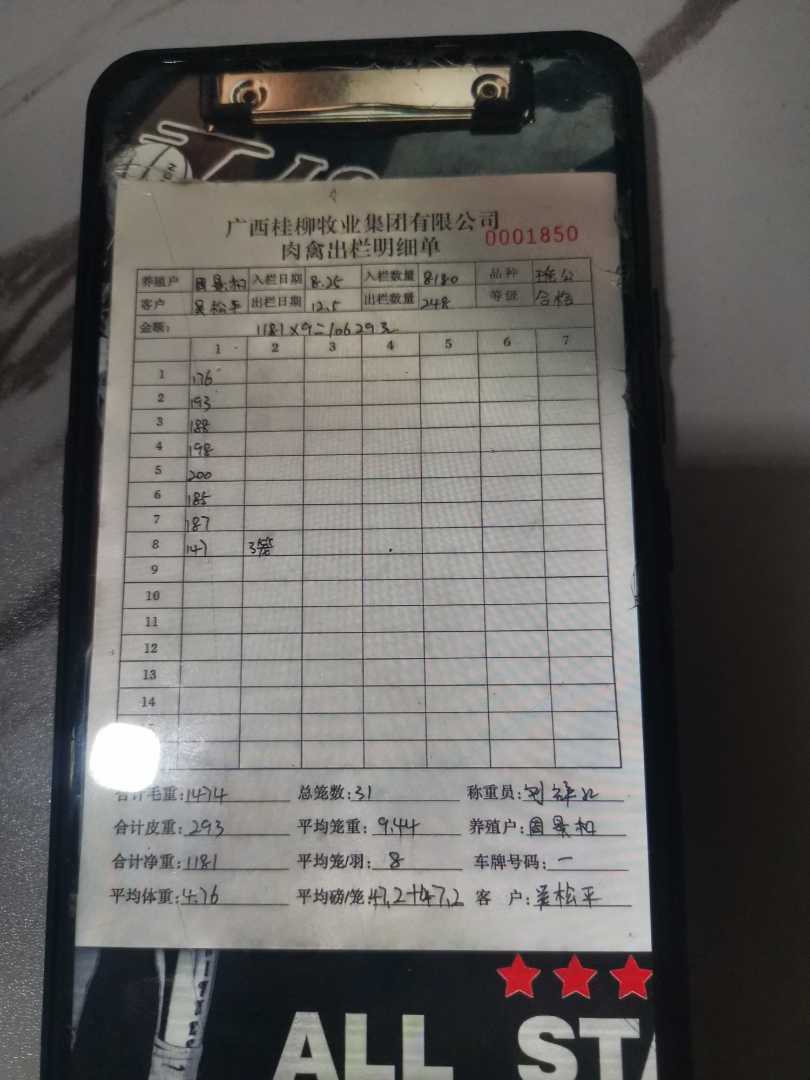 广西桂柳牧业集团有限公司
肉禽出栏明细单 0001850
养殖户 入栏日期 8.25 入栏数量 8180 品种
客户 吴松平 出栏日期 12.5 出栏数量 248 等级 合格
金额: 1181×9=10629元
1 2 3 4 5 6 7
1 176
2 193
3 188
4 198
5 200
6 185
7 187
8 147 3笼
9
10
11
12
13
14
合计毛重:1474 总笼数:31 称重员:
合计皮重:293 平均笼重:9.44 养殖户:
合计净重:1181 平均笼/羽:8 车牌号码:一
平均体重:4.76 平均磅/笼:47.2 47.2 客 户:吴松平
ALL STA